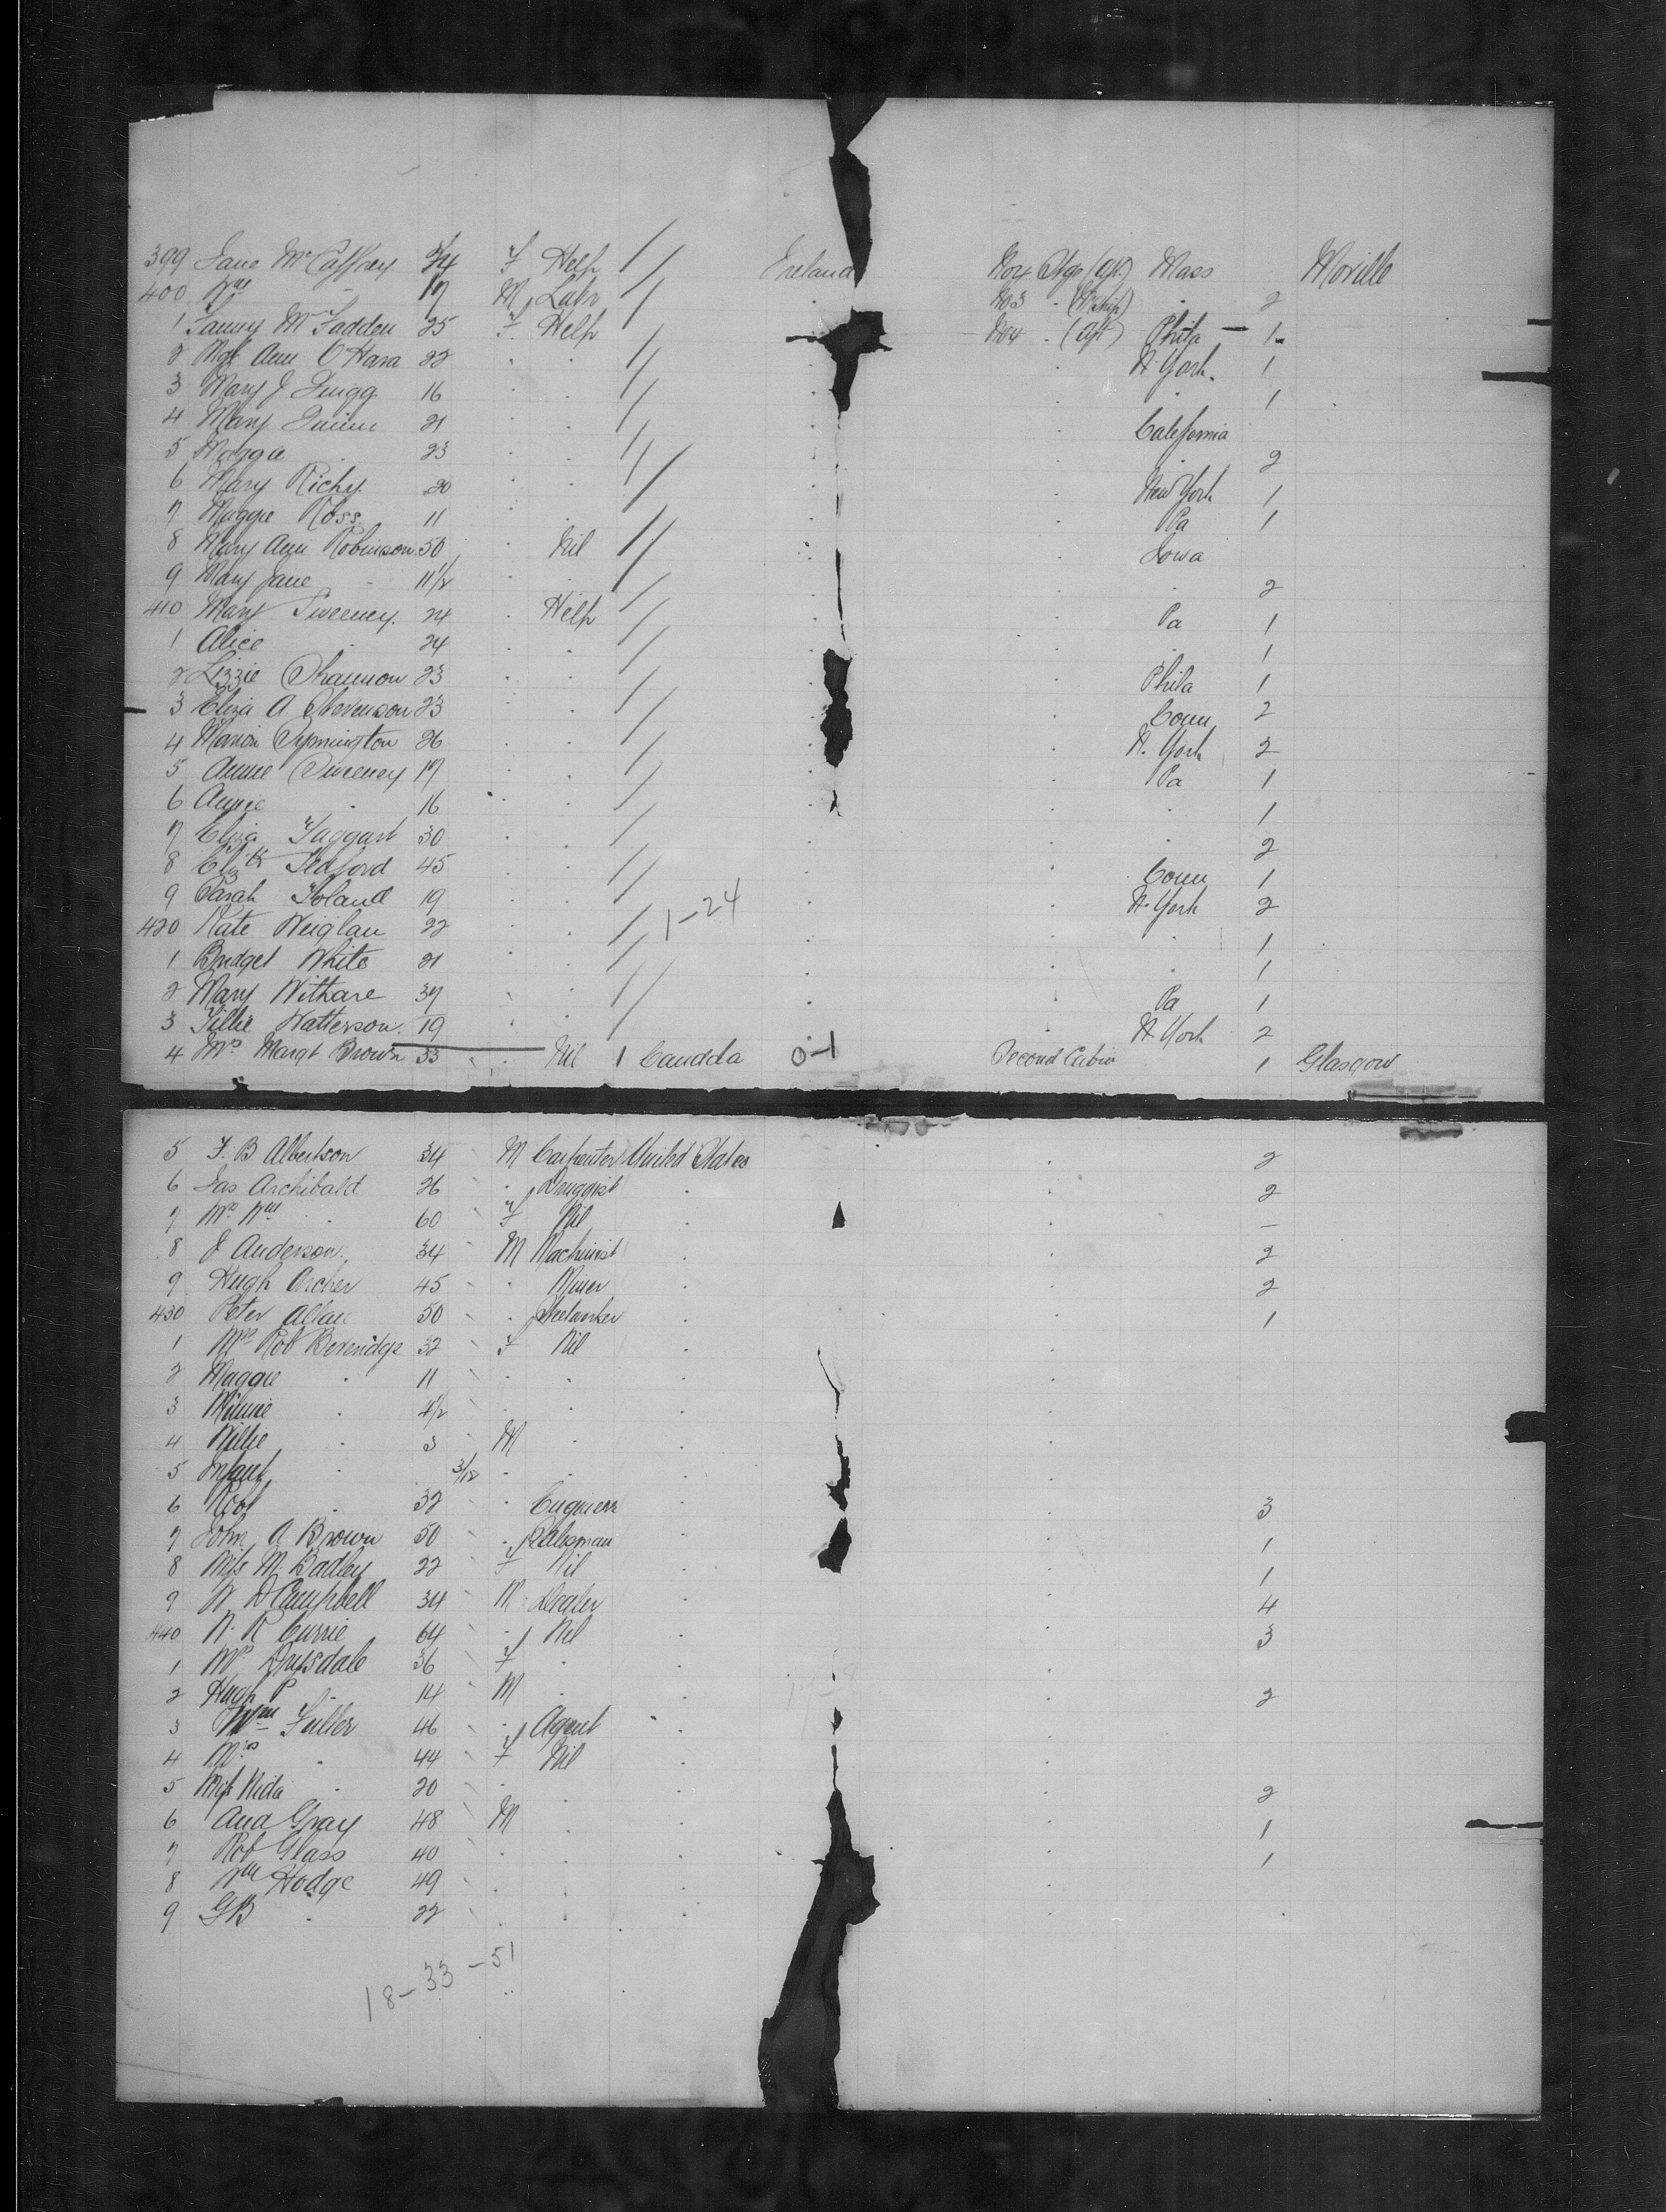 399 Jane McCaffrey 24 F Help / / Ireland No4 Stge (aft.) Mass Moville
400 Wm - 17 M Labr / " No3 " (M'ship) " 2
1 Fanny McFadden 25 F. Help / . No4 . (aft) Phila — 1
2 Mgt Ann O'Hara 22 . . / . . N. York. 1
3 Mary J 16 . . / . . . 1
4 Mary Quinn 21 . . / . . California
5 Maggie . 23 . . / . . . 2
6 Mary Richy 20 . . / . . New York 1
7 Maggie Ross 11 . . / . . Pa 1
8 Mary Ann Robinson 50 . Nil / . . Iowa
9 Mary Jane - 11 1/2 . . / . . . 2
410 Mary Sweeney. 24 . Help / . . Pa 1
1 Alice . 24 . . / . . . 1
2 Lizzie Shannon 23 . . / . . Phila 1
3 Eliza A Stevenson 23 . . / . . Conn 2
4 Marion Symington 26 . . / . . N. York 2
5 Annie Sweeney 17 . . / . . Pa 1
6 Annie . 16 . . / . . . 1
7 Eliza Taggart 30 . . / . . . 2
8 Elizth Tedford 45 . . / . . Conn 1
9 Sarah Toland 19 . . / 1-24 . . N. York 2
420 Kate 22 . . / . . . 1
1 Bridget White 21 . . / . . . 1
2 Mary 37 . . / . . Pa 1
3 Tillie Watterson. 19 . . / . . N York 2
4 Mrs Margt Brown 33 . . Nil 1 Canada 0-1 Second Cabin 1 Glasgow
5 F. B Albertson 34 M Carpenter United States . 2
6 Jas Archibald 26 . Druggist . . 2
7 Mrs Wm . 60 F Nil . . —
8 J Anderson. 34 M Machinist . . 2
9 Hugh Archer 45 . Miner . . 2
430 Peter Allan 50 . . . 1
1 Mrs Rob Beveridge 32 F Nil . .
2 Maggie . 11 . . . .
3 Minnie . 4 1/2 . . . .
4 Willie . 3 M . . .
5 Infant . 3/12 . . . .
6 Rob . 32 . Engineer . . 3
7 John A Brown 50 . Salesman . . 1
8 Miss M. Badley 22 F Nil . . 1
9 W. D Campbell 34 M Dealer . . 4
440 N. R Currie 64 . Nil . . 3
1 Mrs Drysdale 36 F . . .
2 Hugh P - 14 M . . . 2
3 Wm Fuller 46 . Agent . .
4 Mrs . 44 F Nil . .
5 Miss Nida . 20 . . . . 2
6 And Gray 48 M . . . 1
7 Rob Glass 40 . . . . 1
8 Wm Hodge 49 . . . .
9 GB . 22 . . . .
18-33-51